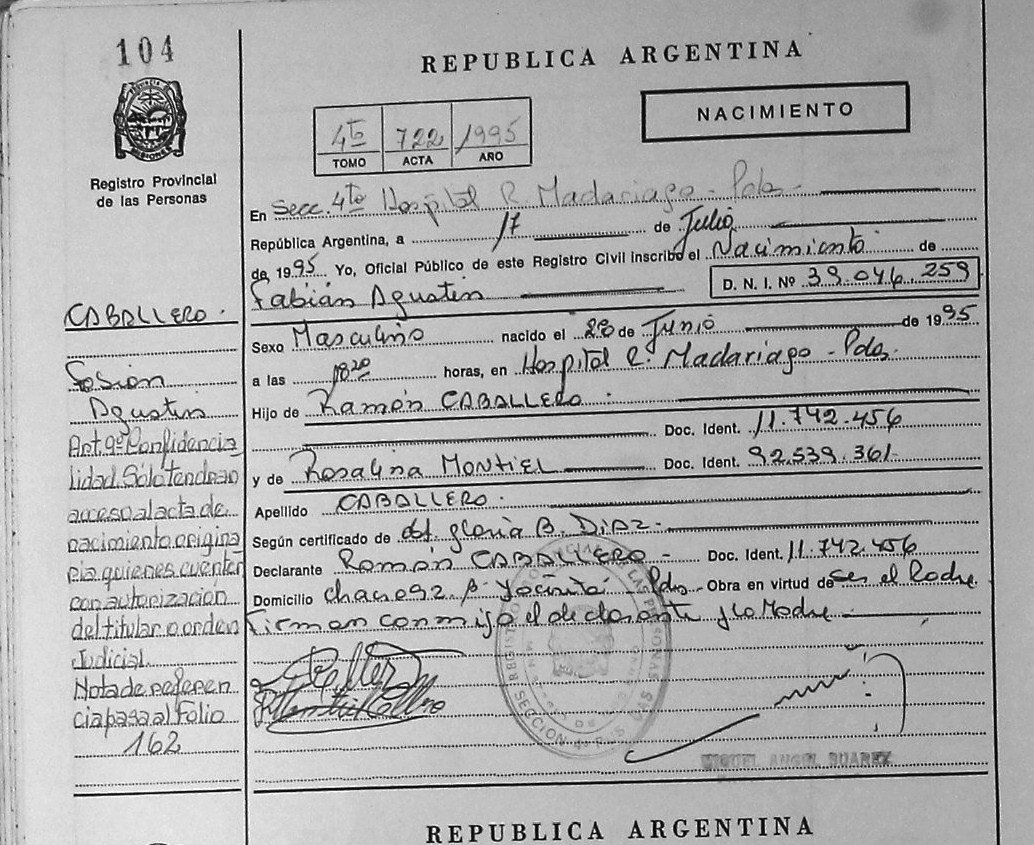 104
REPUBLICA ARGENTINA
NACIMIENTO
4to 722 1995
TOMO ACTA AÑO
PROVINCIA DE MISIONES
Registro Provincial
de las Personas
En Secc. 4to Hospital R. Madariaga - Pdas -
República Argentina, a 17 de Julio
de 1995 Yo, Oficial Público de este Registro Civil inscribo el Nacimiento de
Fabián Agustin D. N. I. Nº 39.046.259
Sexo Masculino nacido el 28 de Junio de 1995
a las 18 20 horas, en Hospital R. Madariaga - Pdas.
Hijo de Ramón CABALLERO.
Doc. Ident. 11.742.456
y de Rosalina MONTIEL Doc. Ident. 92.539.361
Apellido CABALLERO.
Según certificado de obst. Gloria B. DIAZ -
Declarante Ramón CABALLERO - Doc. Ident. 11.742.456
Domicilio chacra 92 Bº Yacireta - Pdas - Obra en virtud de ser el Padre
Firman conmigo el declarante y la Madre -
MIGUEL ANGEL SUAREZ
CABALLERO.
Fabian
Agustin
Art. 9º Confidencia
lidad. Sólo tendrán
acceso al acta de
nacimiento origina
ria quienes cuenten
con autorización
del titular o orden
Judicial.
Nota de referen
cia pasa al Folio
162
REPUBLICA ARGENTINA